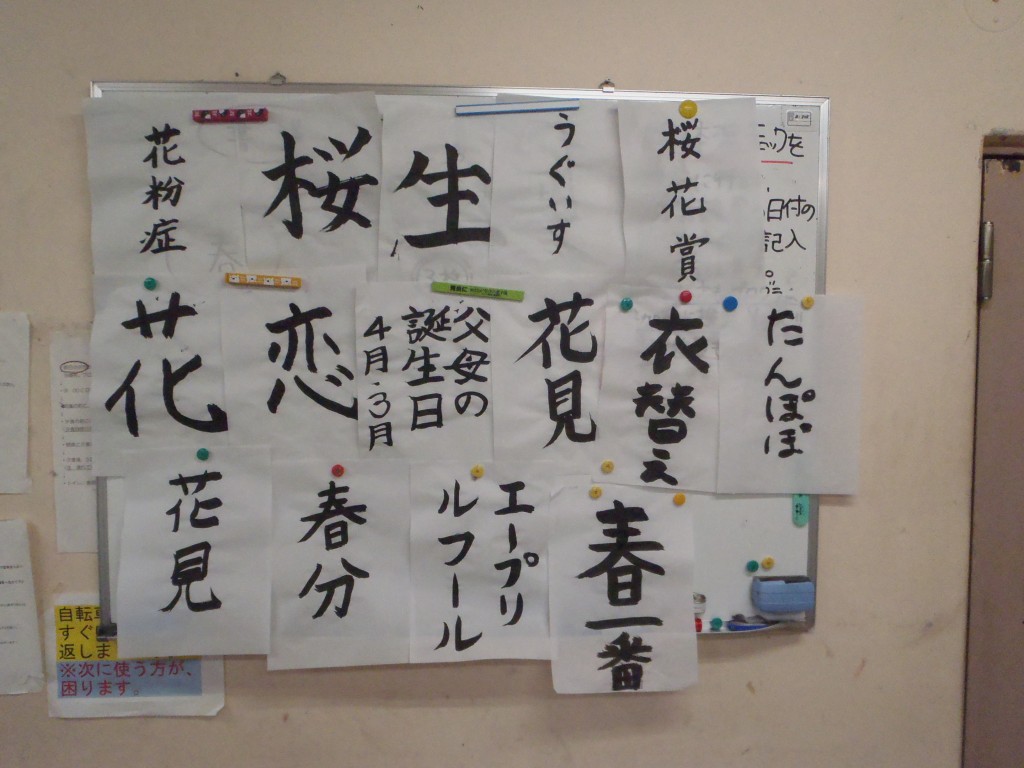 花粉症
桜
生
うぐいす
桜花賞
花
恋
父母の
誕生日
4月・3月
花見
衣替え
たんぽぽ
花見
春分
エープリ
ルフール
春一番
ミックを
日付の
記入
自転車
すぐ
返しま
※次に使う方が、
困ります。